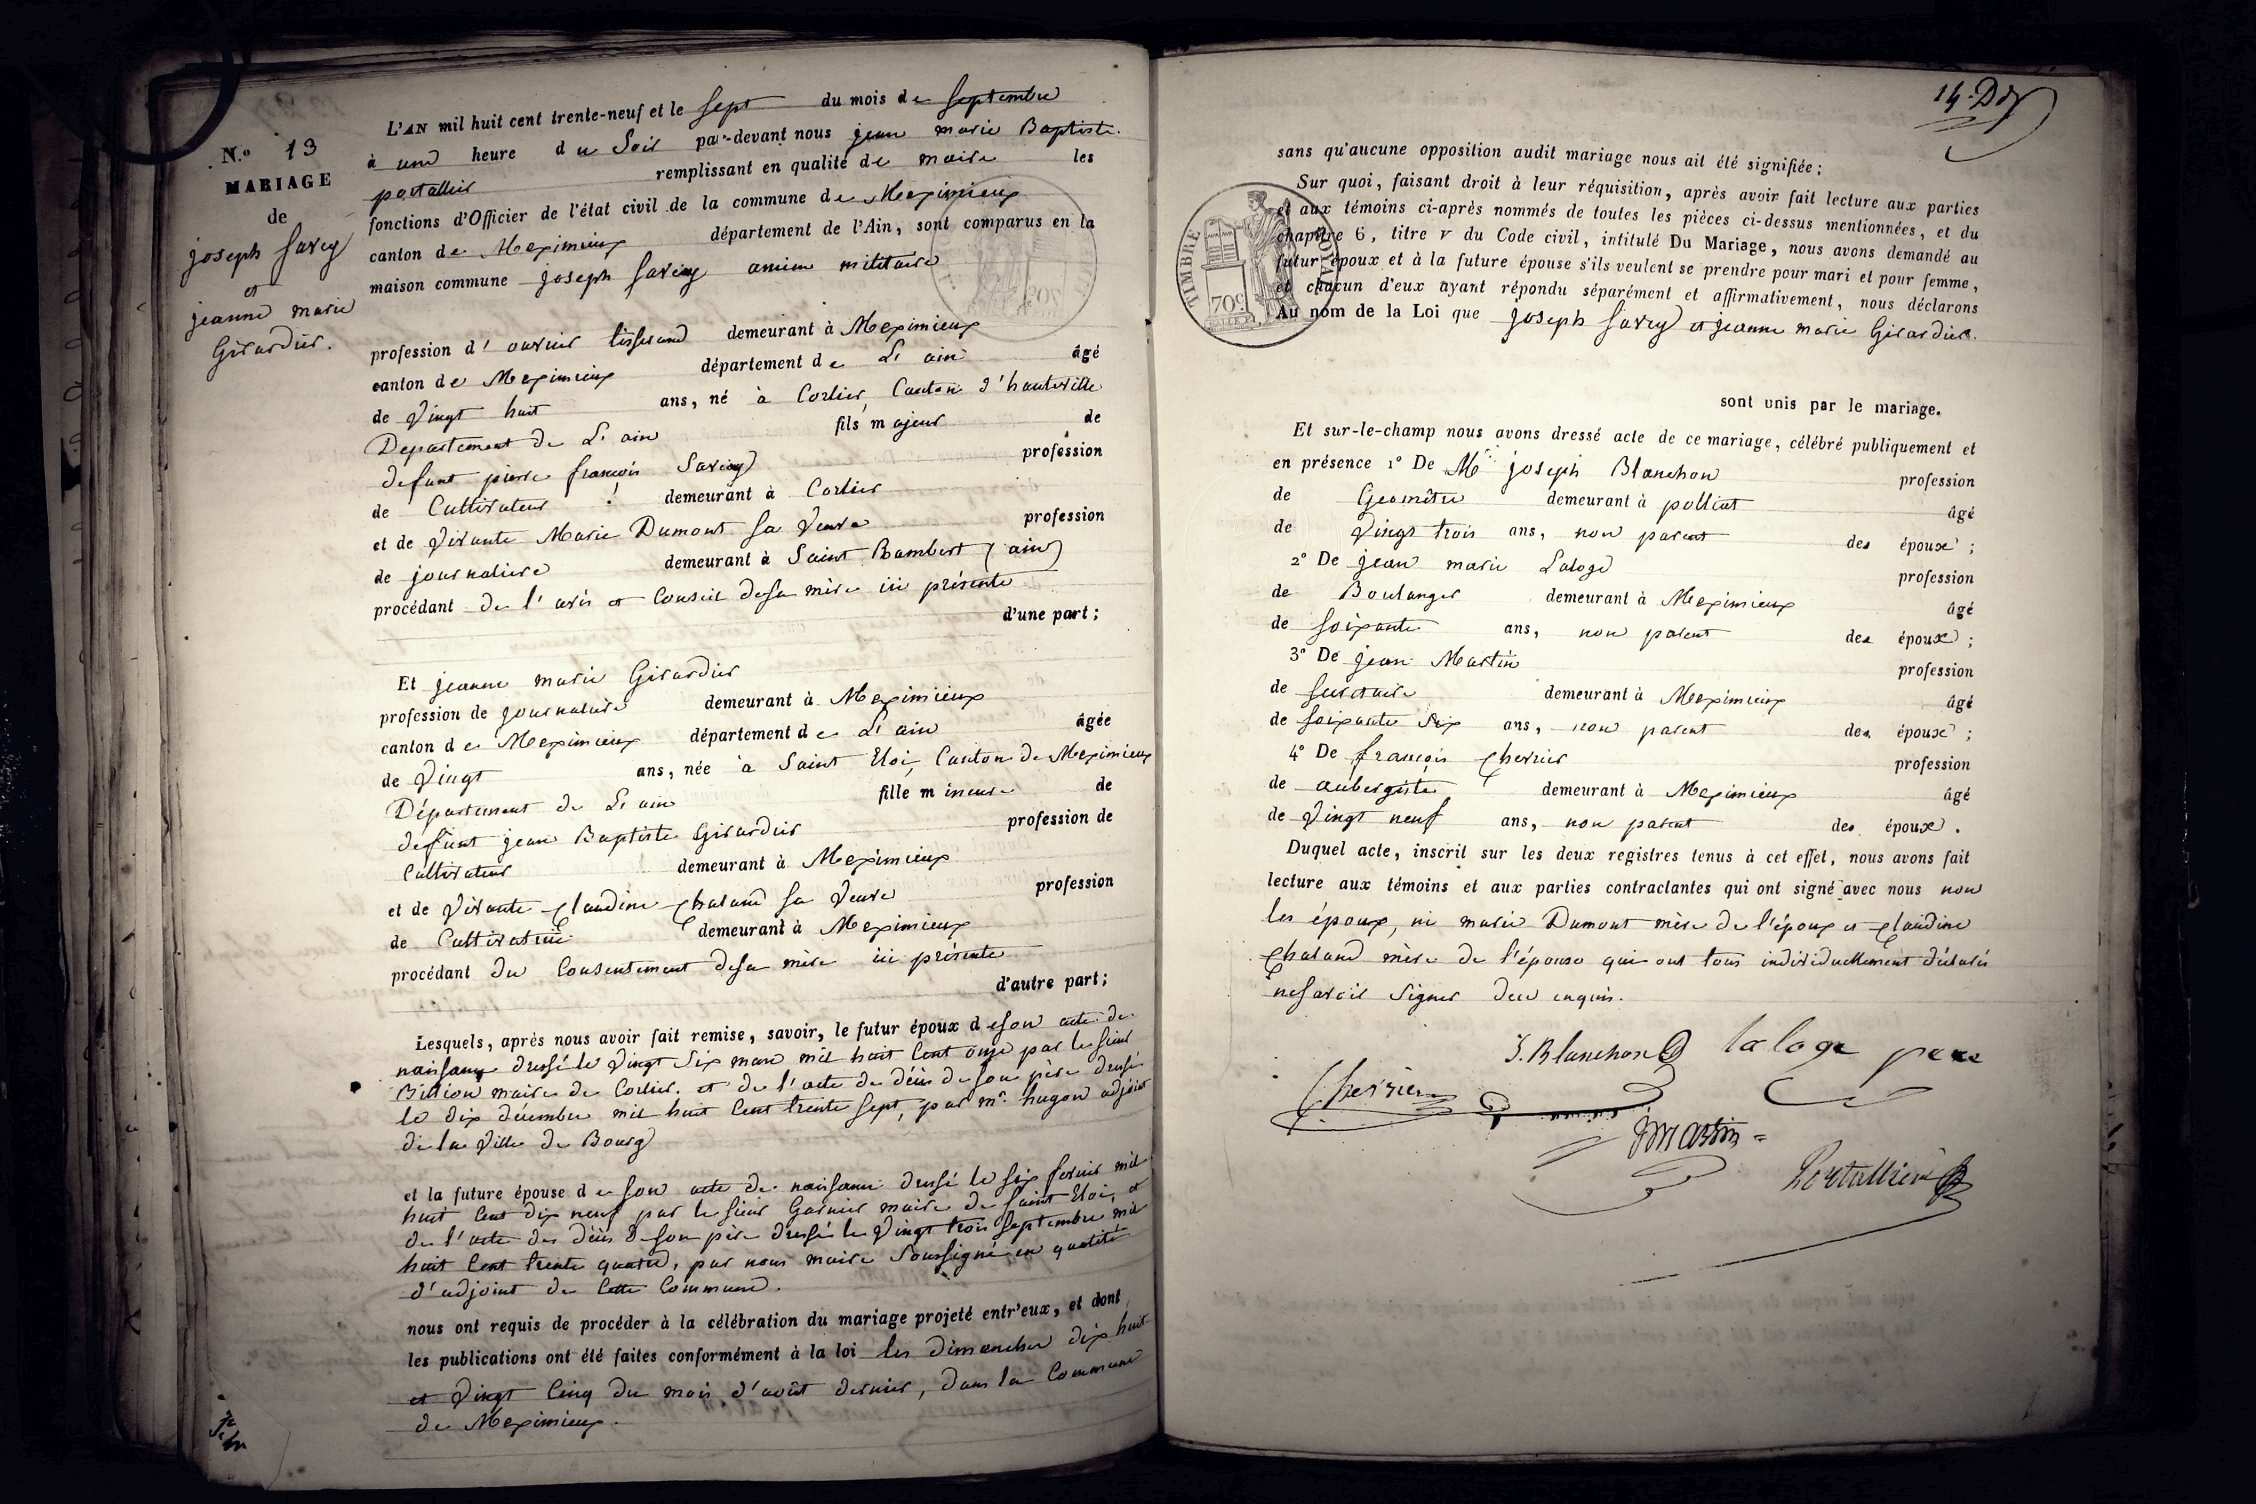 N.o 13
MARIAGE
de
joseph Savey
et
jeanne marie
Girardier.
L'AN mil huit cent trente-neuf et le sept du mois de septembre
à une heure du Soir par-devant nous jean marie Baptiste
portallier remplissant en qualité de maire les
fonctions d'Officier de l'état civil de la commune de Meximieux
canton de Meximieux département de l'Ain, sont comparus en la
maison commune joseph Savey ancien militaire
profession d'ouvrier tisserand demeurant à Meximieux
canton de Meximieux département de L'ain âgé
de Vingt huit ans, né à Corlier, Canton d'hauteville
Departement de L'ain fils majeur de
defunt pierre françois Savey profession
de Cultivateur demeurant à Corlier
et de Vivante Marie Dumont sa Veuve profession
de journaliere demeurant à Saint Rambert (ain)
procédant de l'avis et Conseil desa mère ici présente
d'une part;
Et jeanne marie Girardier
profession de journalière demeurant à Meximieux
canton de Meximieux département de L'ain âgée
de Vingt ans, née à Saint Eloi, Canton de Meximieux
Département de L'ain fille mineure de
defunt jean Baptiste Girardier profession de
Cultivateur demeurant à Meximieux
et de Vivante Claudine Chaland sa Veuve profession
de Cultivatrice demeurant à Meximieux
procédant du Consentement desa mère ici présente
d'autre part;
Lesquels, après nous avoir fait remise, savoir, le futur époux de son acte de
naissance dressé le Vingt Six mars mil huit Cent onze par le sieur
maire de Corlier, et de l'acte de décès de son père dressé
le dix décembre mil huit Cent trente sept, par mr. hugon adjoint
de la Ville de Bourg
et la future épouse de son acte de naissance dressé le six fevrier mil
huit Cent dix neuf par le sieur Garnier maire de Saint Eloi, et
de l'acte des décès de son père dressé le Vingt trois septembre mil
huit Cent trente quatre, par nous maire Soussigné en qualité
d'adjoint de Cette Commune.
nous ont requis de procéder à la célébration du mariage projeté entr'eux, et dont
les publications ont été faites conformément à la loi les dimanches dix huit
et Vingt Cinq du mois d'août dernier, dans la Commune
de Meximieux.
TIMBRE ROYAL
70c
sans qu'aucune opposition audit mariage nous ait été signifiée;
Sur quoi, faisant droit à leur réquisition, après avoir fait lecture aux parties
et aux témoins ci-après nommés de toutes les pièces ci-dessus mentionnées, et du
chapitre 6, titre v du Code civil, intitulé Du Mariage, nous avons demandé au
futur époux et à la future épouse s'ils veulent se prendre pour mari et pour femme,
et chacun d'eux ayant répondu séparément et affirmativement, nous déclarons
Au nom de la Loi que joseph Savey et jeanne marie Girardier.
sont unis par le mariage.
Et sur-le-champ nous avons dressé acte de ce mariage, célébré publiquement et
en présence 1° De Mr joseph Blanchon profession
de Géomètre demeurant à polliat âgé
de Vingt trois ans, non parent des époux;
2° De jean marie Laloge profession
de Boulanger demeurant à Meximieux âgé
de soixante ans, non parent des époux;
3° De jean Martin profession
de demeurant à Meximieux âgé
de soixante Six ans, non parent des époux;
4° De françois Cherrier profession
de aubergiste demeurant à Meximieux âgé
de Vingt neuf ans, non parent des époux.
Duquel acte, inscrit sur les deux registres tenus à cet effet, nous avons fait
lecture aux témoins et aux parties contractantes qui ont signé avec nous non
les époux, ni marie Dumont mère de l'époux et Claudine
Chaland mère de l'épouse qui ont tous individuellement déclaré
nesavoir Signer de ce enquis.
J. Blanchon laloge pere
Cherrier
J martin
Portallier